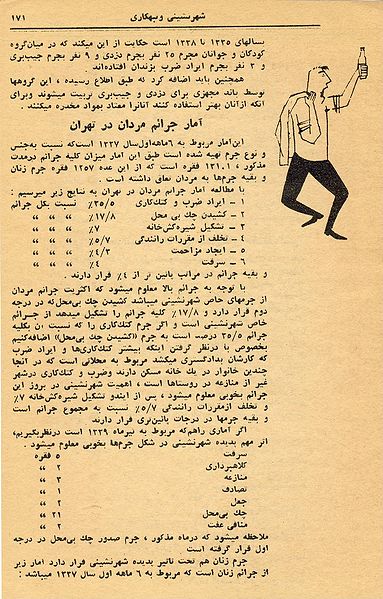 شهرنشینی وبهکاری ۱۷۱
بسالهای ۱۳۳۵ تا ۱۳۳۸ است حکایت از این میکند که در میان‌گروه
کودکان و جوانان مجرم ۲۵ نفر بجرم دزدی و ۹ نفر بجرم جیب‌بری
و ۳ نفر بجرم ایراد ضرب بزندان افتاده‌اند
همچنین باید اضافه کرد که طبق اطلاع رسیده ، این گروهها
توسط باند مجهزی برای دزدی و جیب‌بری تربیت میشوند وبرای
آنکه ازآنان بهتر استفاده کنند آنانرا معتاد بمواد مخدره میکنند .
آمار جرائم مردان در تهران
این‌آمار مربوط به ۶ماهه‌اول‌سال ۱۳۳۷ است‌که نسبت به‌جنس
و نوع جرم تهیه شده است طبق این آمار میزان کلیه جرائم درمدت
مذکور ، ۱۳۱۰۱ فقره است که از این عده ۱۲۵۷ فقره جرم زنان
و بقیه جرمها به مردان تعلق داشته است .
با مطالعه آمار جرائم مردان در تهران به نتایج زیر میرسیم :
۱ - ایراد ضرب و کتک‌کاری ۳۵/۵٪ نسبت بکل جرائم
۲ - کشیدن چك بی محل ۱۷/۸٪ » » »
۳ - تشکیل شیره‌کش‌خانه ۷٪ » » »
۴ - تخلف از مقررات رانندگی ۵/۷٪ » » »
۵ - ایجاد مزاحمت ۴/۳٪ » » »
۶ - سرقت ۴٪ » » »
و بقیه جرائم در مراتب پائین تر از ۴٪ قرار دارند .
با توجه به جرائم بالا معلوم میشود که اکثریت جرائم مردان
از جرمهای خاص شهرنشینی میباشد کشیدن چك بی‌محل‌که در درجه
دوم قرار دارد و ۱۷/۸٪ کلیه جرائم را تشکیل میدهد از جرائم
خاص شهرنشینی است و اگر جرم کتك‌کاری را که نسبت آن بکلیه
جرائم ۳۵/۵ درصد است به جرم «کشیدن چك بی‌محل» اضافه‌کنیم
بخصوص با درنظر گرفتن اینکه بیشتر کتك‌کاری‌ها و ایراد ضرب
که کارشان بدادگستری میکشد مربوط به محلاتی است که در آنجا
چندین خانوار در یك خانه مسکن دارند وضرب و کتك‌کاری درشهر
غیر از منازعه در روستاها است ، اهمیت شهرنشینی در بروز این
جرائم بخوبی معلوم میشود ، پس از ایندو تشکیل شیره‌کش‌خانه ۷٪
و تخلف ازمقررات رانندگی ۵/۷٪ نسبت به مجموع جرائم است
و بقیه جرمها در درجات پائین‌تری قرار دارند
اگر آماری راهم‌که مربوط به تیرماه ۱۳۳۹ است درنظربگیریم،
اثر مهم پدیده شهرنشینی در شکل جرم‌ها بخوبی معلوم میشود .
سرقت ۵ فقره
کلاهبرداری ۲ »
منازعه ۳ »
تصادف ۱ »
جعل ۲ »
چك بی‌محل ۲۱ »
منافی عفت ۲ »
ملاحظه میشود که درماه مذکور ، جرم صدور چك بی‌محل در درجه
اول قرار گرفته است
جرم زنان هم تحت تاثیر پدیده شهرنشینی قرار دارد آمار زیر
از جرائم زنان است که مربوط به ۶ ماهه اول سال ۱۳۳۷ میباشد :